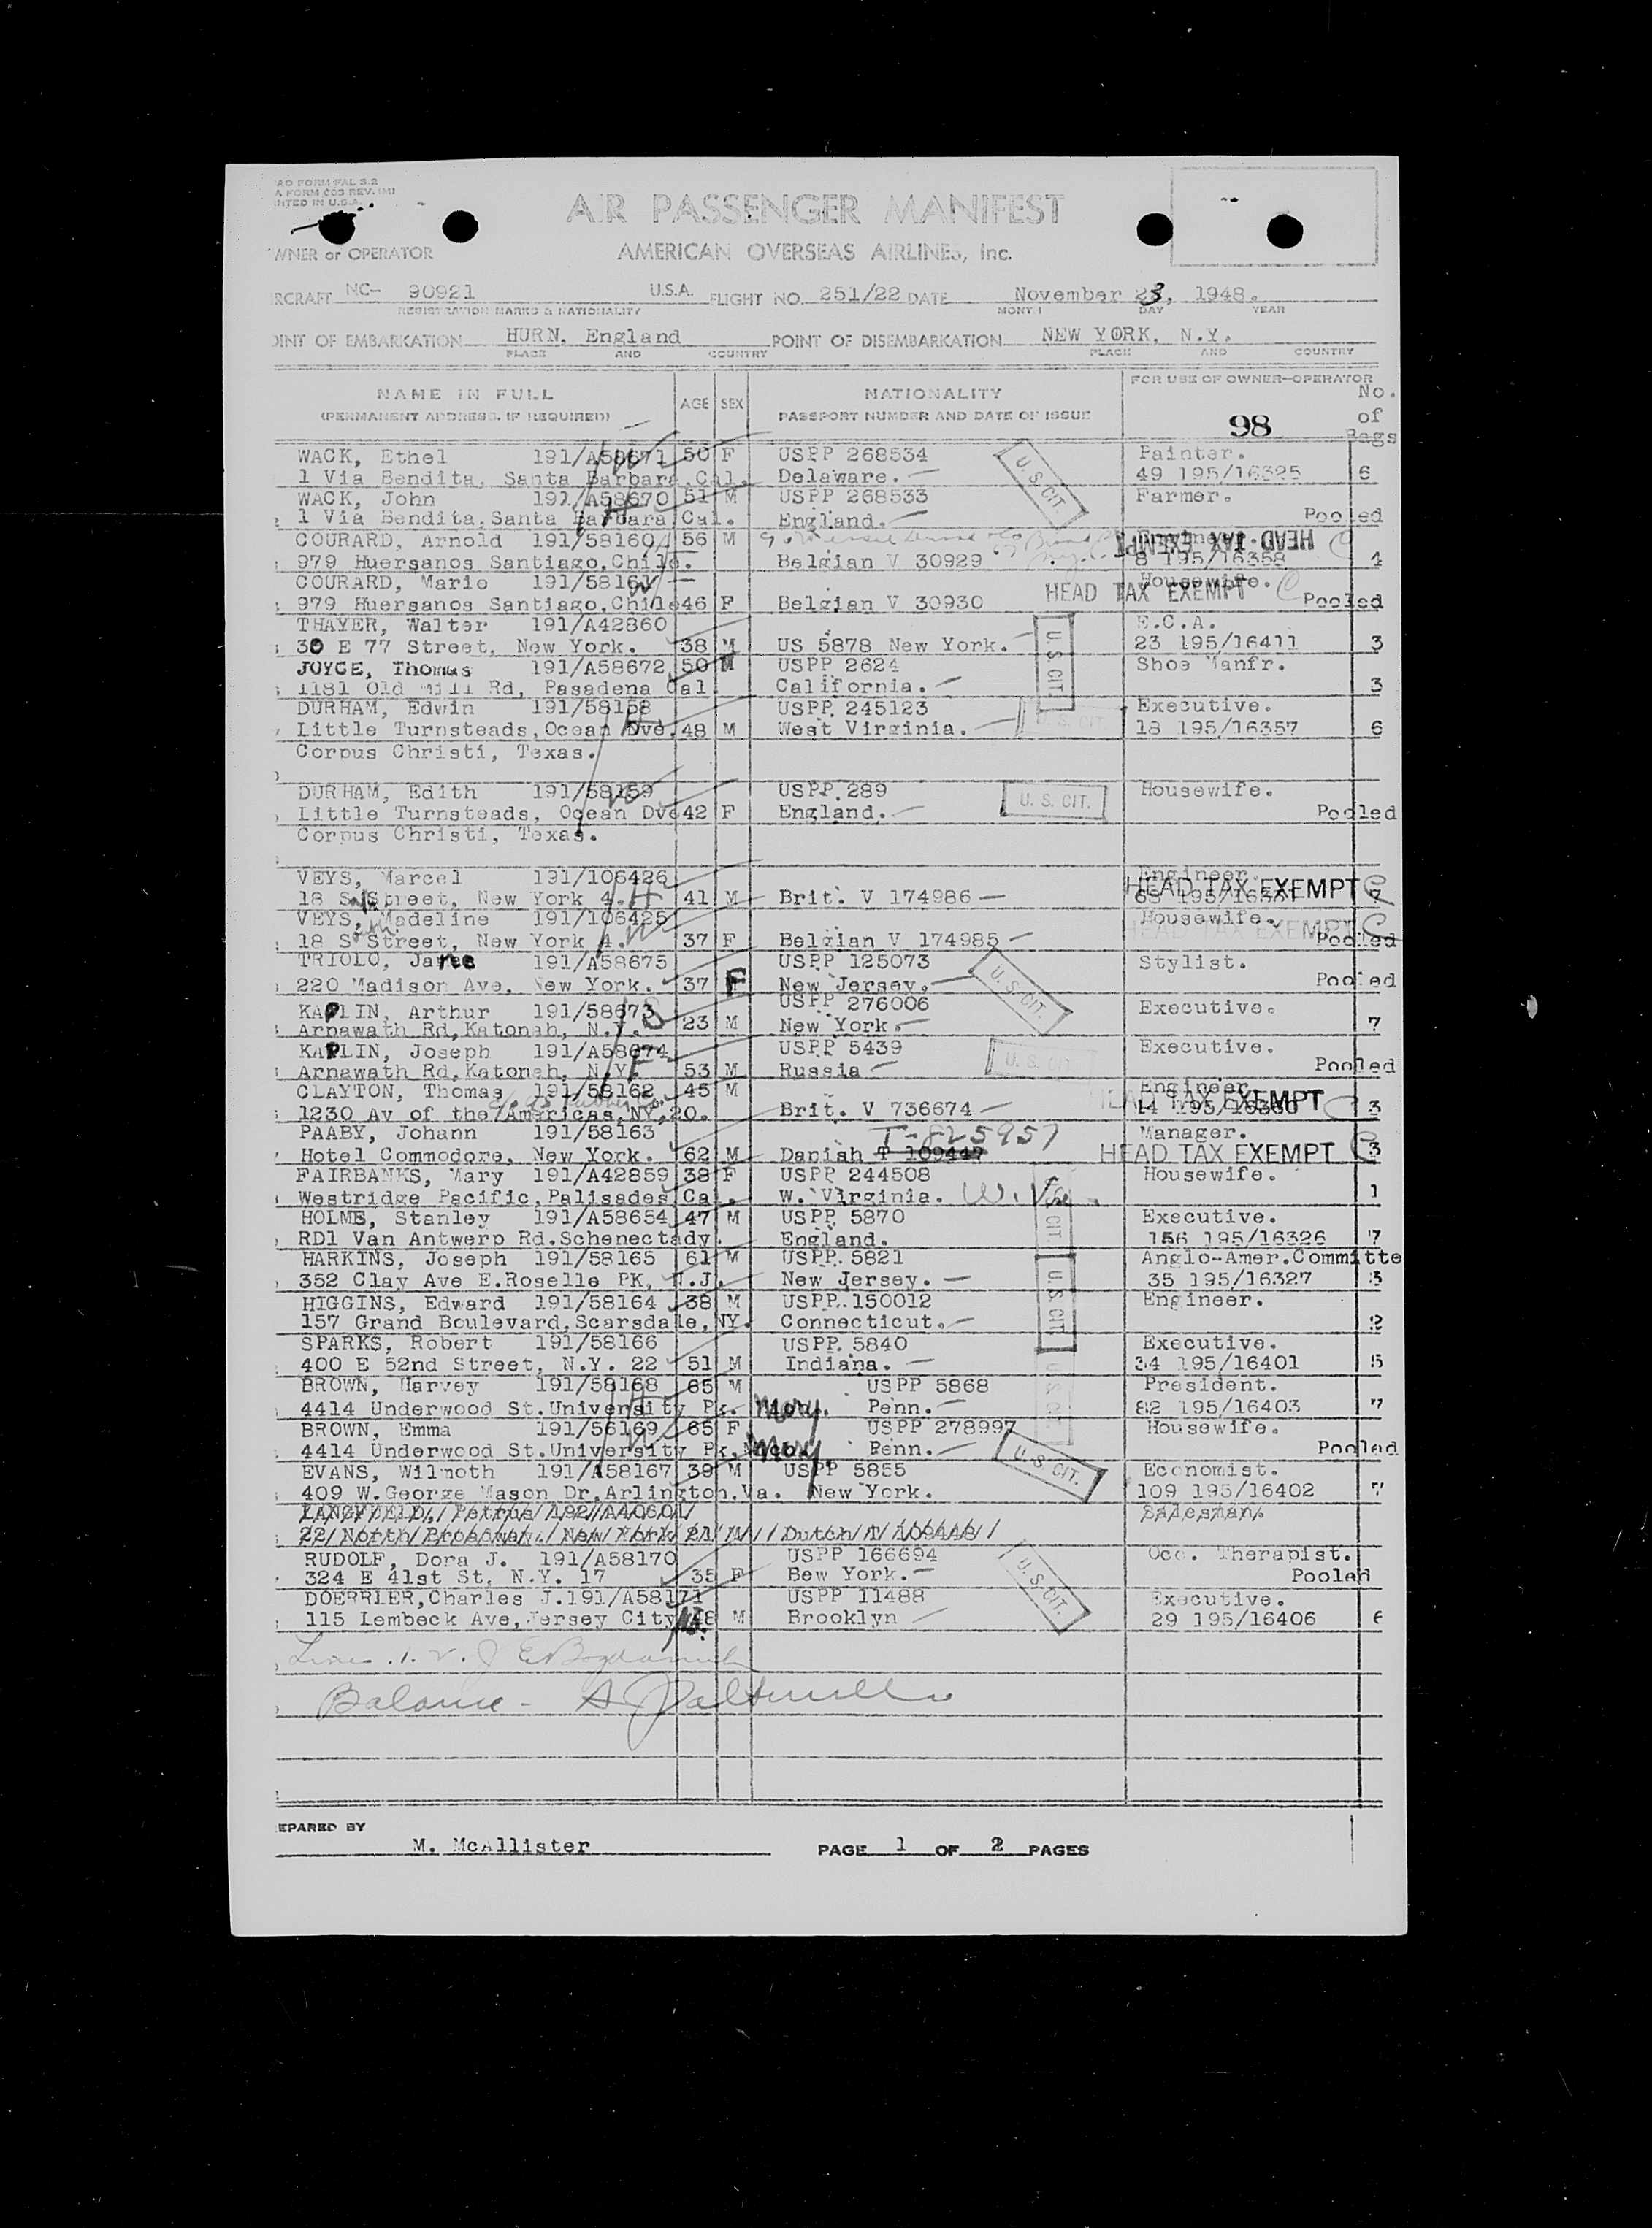 AO FORM FAL 3.2
A FORM 603 REV.
NTED IN U.S.A.
AIR PASSENGER MANIFEST
WNER or OPERATOR AMERICAN OVERSEAS AIRLINES, Inc.
RCRAFT NC- 90921 U.S.A. FLIGHT NO. 251/22 DATE November 23, 1948.
REGISTRATION MARKS & NATIONALITY MONTH DAY YEAR
OINT OF EMBARKATION HURN, England POINT OF DISEMBARKATION NEW YORK, N.Y.
PLACE AND COUNTRY PLACE AND COUNTRY
NAME IN FULL AGE SEX NATIONALITY FOR USE OF OWNER-OPERATOR No.
(PERMANENT ADDRESS, IF REQUIRED) PASSPORT NUMBER AND DATE OF ISSUE 98 of
Bags
WACK, Ethel 191/A58671 50 F USPP 268534 U.S. CIT. Painter.
1 Via Bendita, Santa Barbara,Cal. Delaware. 49 195/16325 6
WACK, John 191/A58670 51 M USPP 268533 Farmer.
1 Via Bendita,Santa Barbara,Cal. England. Pooled
COURARD, Arnold 191/58160 56 M HEAD TAX EXEMPT
979 Huersanos Santiago,Chile. Belgian V 30929 8 195/16358 4
COURARD, Marie 191/58161 Housewife.
979 Huersanos Santiago,Chile 46 F Belgian V 30930 HEAD TAX EXEMPT C Pooled
THAYER, Walter 191/A42860 E.C.A.
30 E 77 Street, New York. 38 M US 5878 New York. U.S. CIT. 23 195/16411 3
JOYCE, Thomas 191/A58672 50 M USPP 2624 Shoe Manfr.
1181 Old Mill Rd, Pasadena Cal. California. 3
DURHAM, Edwin 191/58158 USPP 245123 Executive.
Little Turnsteads,Ocean Dve. 48 M West Virginia. U.S. CIT. 18 195/16357 6
Corpus Christi, Texas.
DURHAM, Edith 191/58159 USPP 289 U. S. CIT. Housewife.
Little Turnsteads, Ocean Dve 42 F England. Pooled
Corpus Christi, Texas.
VEYS, Marcel 191/106426 Engineer.
18 Street, New York 4. H 41 M Brit. V 174986 HEAD TAX EXEMPT C 7
VEYS, Madeline 191/106425 Housewife.
18 South Street, New York 4. W 37 F Belgian V 174985 HEAD TAX EXEMPT C Pooled
TRIOLO, Janee 191/A58675 USPP 125073 Stylist.
220 Madison Ave, New York. 37 F New Jersey. U.S. CIT. Pooled
KAPLIN, Arthur 191/58673 USPP 276006 Executive.
Arnawath Rd,Katonah, N.Y. 23 M New York. 7
KAPLIN, Joseph 191/A58674 USPP 5439 Executive.
Arnawath Rd,Katonah, N.Y. 53 M Russia U. S. CIT Pooled
CLAYTON, Thomas 191/58162 45 M Engineer
1230 Av of the Americas,NY,20. Brit. V 736674 HEAD TAX EXEMPT 3
PAABY, Johann 191/58163 T-825957 Manager.
Hotel Commodore, New York. 62 M Danish T 109447 HEAD TAX EXEMPT C 3
FAIRBANKS, Mary 191/A42859 38 F USPP 244508 Housewife.
Westridge Pacific,Palisades Ca. W. Virginia. W. Va. 1
HOLME, Stanley 191/A58654 47 M USPP 5870 Executive.
RD1 Van Antwerp Rd.Schenectady. England. 156 195/16326 7
HARKINS, Joseph 191/58165 61 M USPP 5821 Anglo-Amer.Committe
352 Clay Ave E.Roselle PK, N.J. New Jersey. U.S. CIT. 35 195/16327 3
HIGGINS, Edward 191/58164 38 M USPP 150012 Engineer.
157 Grand Boulevard,Scarsdale,NY. Connecticut. 2
SPARKS, Robert 191/58166 USPP 5840 Executive.
400 E 52nd Street, N.Y. 22 51 M Indiana. 34 195/16401 5
BROWN, Harvey 191/58168 65 M USPP 5868 President.
4414 Underwood St.University Pk. Mary. Penn. 82 195/16403 7
BROWN, Emma 191/58169 65 F USPP 278997 Housewife.
4414 Underwood St.University Pk, Mary. Penn. U.S. CIT. Pooled
EVANS, Wilmoth 191/A58167 39 M USPP 5855 Economist.
409 W.George Mason Dr.Arlington.Va. New York. 109 195/16402 7
LANGVELD, Petrus 192/A40601 Salesman
22 North Broadway, New York 21 M Dutch T 109448
RUDOLF, Dora J. 191/A58170 USPP 166694 Occ. Therapist.
324 E 41st St, N.Y. 17 35 F Bew York. U.S. CIT. Pooled
DOERRIER,Charles J.191/A58171 USPP 11488 Executive.
115 Lembeck Ave,Jersey City NJ. 48 M Brooklyn 29 195/16406 6
Balance -
EPARED BY
M. McAllister PAGE 1 OF 2 PAGES